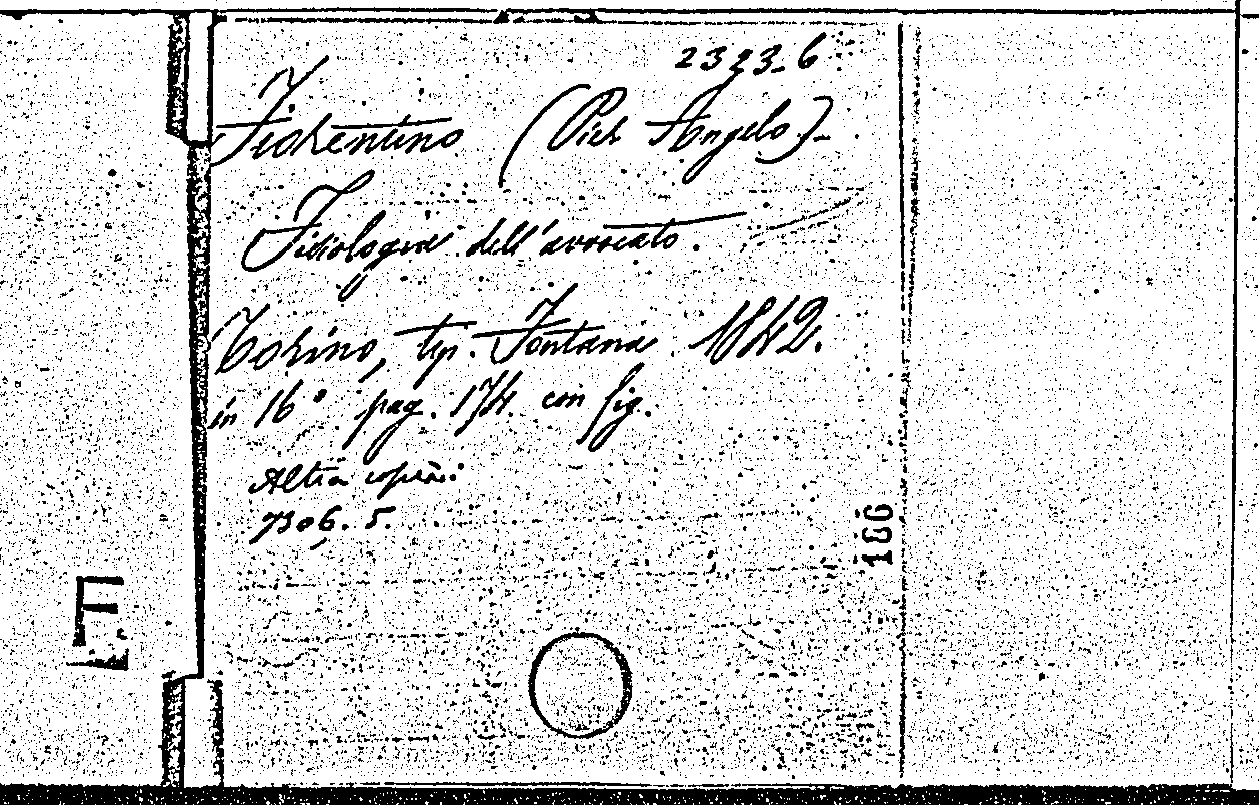 2323_6
Fiorentino (Pier Angelo)_
Fisiologia dell'avvocato.
Torino, tip. Fontana 1842.
in 16° pag. 174. con fig.
Altra copia:
7306. 5.
186
F